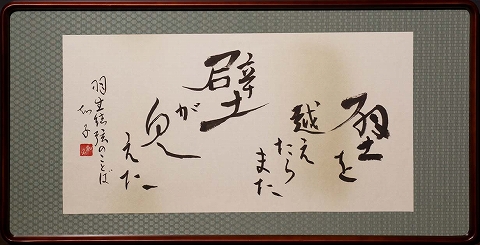 壁を
越え
たら
また
壁
が
見
えた
羽生結弦のことば